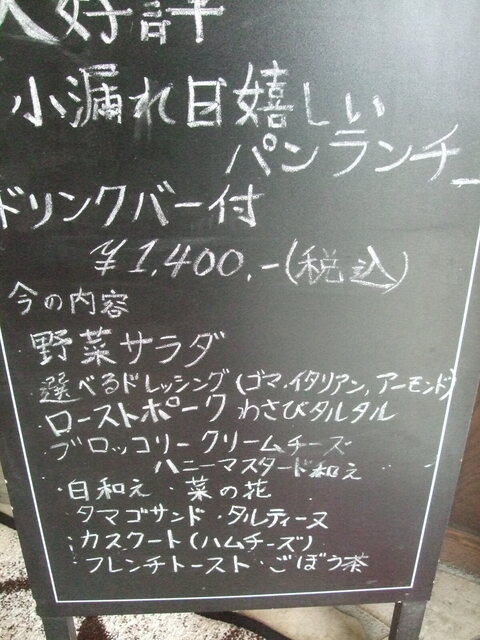 大好評
小漏れ日嬉しい
パンランチ
ドリンクバー付
¥1,400.-(税込)
今の内容
野菜サラダ
選べるドレッシング(ゴマ.イタリアン,アーモンド)
・ローストポーク わさびタルタル
ブロッコリー クリームチーズ
ハニーマスタード和え
・白和え ・菜の花
タマゴサンド・タルティーヌ
・カスクート(ハムチーズ)
・フレンチトースト・ごぼう茶